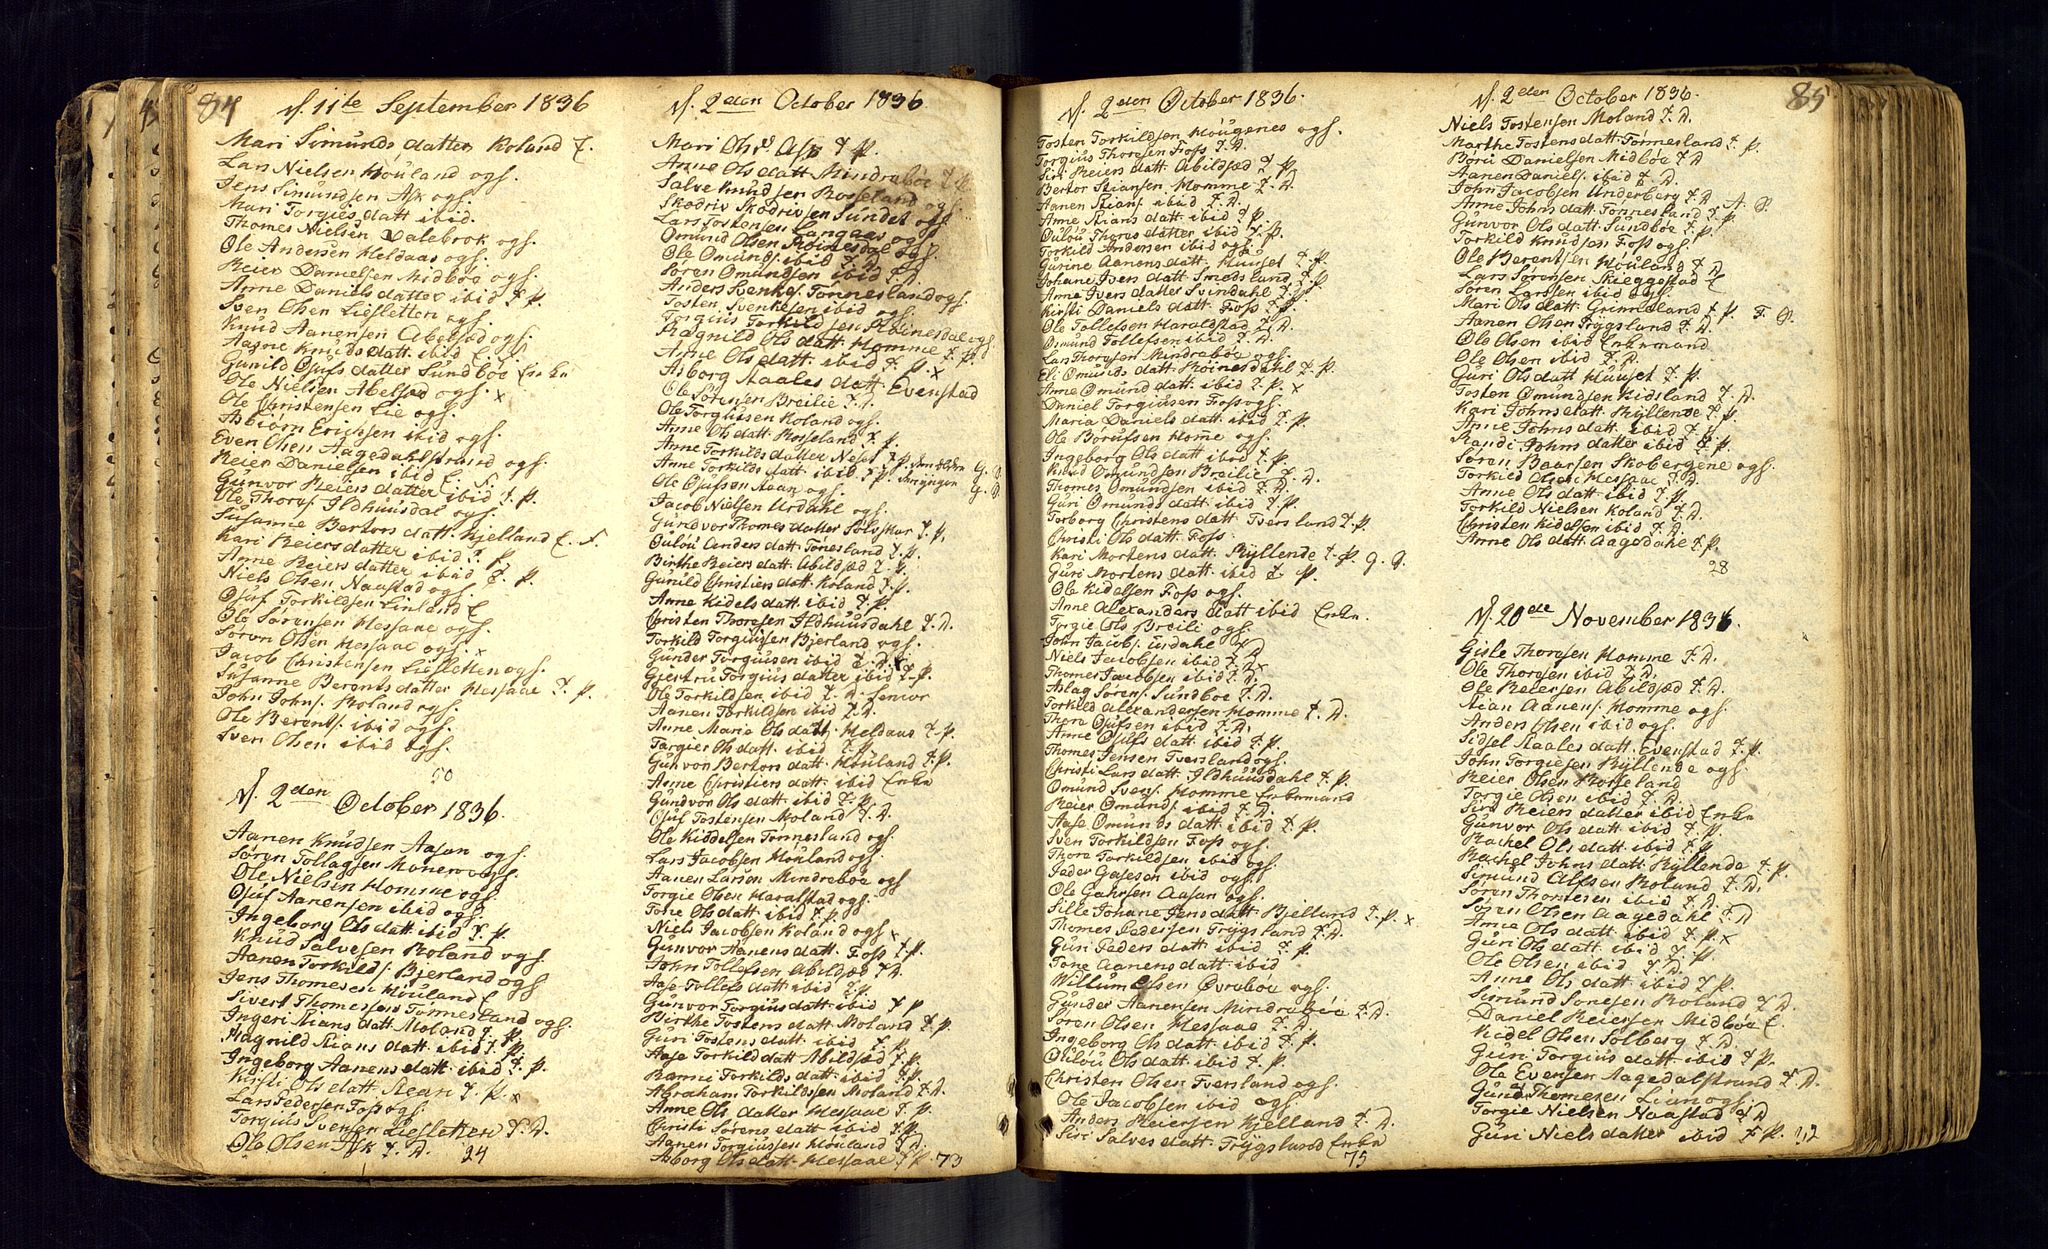 84
d. 11te September 1836
Mari Simunds datter Roland E.
Lars Nielsen Houland ogs.
Jens Simundsen Ask ogs.
Mari Torgies datt ibid.
Thomes Nielsen Dalebrok ogs.
Ole Andersen Heldaas ogs.
Reier Danielsen Midbøe ogs.
Anne Daniels datter ibid F. P.
Sven Olsen Liesletten ogs.
Knud Aanensen Abelsæd ogs.
Aasne Knuds datt ibid E.
Gunild Ojufs datter Sundbøe Enke
Ole Nielsen Abelsæd ogs. x
Ole Christensen Lie ogs.
Asbiørn Ericksen ibid ogs.
Even Olsen Aagedahlstrand ogs.
Reier Danielsen ibid E. F.
Gunvor Reiers datter ibid F. P.
Ole Thores. Ildhuusdal ogs.
Susanne Bertors datt. Kjelland E. F.
Kari Reiers datter ibid F. P.
Anne Reiers datter ibid F. P.
Niels Olsen Naastad ogs.
Ojuf Torkildsen Linland E
Ole Sørensen Messaae ogs.
Søren Olsen Messaae ogs. x
Jacob Christensen Liesletten ogs.
Susanne Berents datter Messaae F. P.
John Johns. Roland ogs.
Ole Berents. ibid ogs.
Sven Olsen ibid ogs.
50
d. 2den October 1836
Aanen Knudsen Aasan ogs.
Søren Tollagsen Monero ogs.
Ole Nielsen Homme ogs.
Ojuf Aanensen ibid ogs.
Ingeborg Ols datt ibid F. P.
Knud Salvesen Roland ogs
Aanen Torkilds. Bjerland ogs
Jens Thomesen Houland E
Sivert Thomessen Tønnesland ogs.
Ingeri Stians datt Moland F. P.
Ragnild Stians datt ibid F. P.
Ingeborg Aanens datt ibid F. P.
Kirsti Ols datt Steari F. P. x
Lars Pedersen Foss ogs.
Torgius Svensen Liesletten F. D.
Ole Olsen Ask F. D. 24
d. 2den October 1836
Mari Olsd Ask F P.
Anne Ols datt Mindrebøe F. P.
Salve Knudsen Rosseland ogs.
Skodriv Skodrivsen Sundet ogs
Lars Tostensen Langaas ogs
Omund Olsen Stoinesdal ogs.
Ole Omunds. ibid F. D.
Søren Omundsen ibid F. D.
Anders Svenkes. Tønnesland ogs.
Tosten Svenkesen ibid ogs.
Torgius Torkildsen Stoinesdal ogs
Ragnild Ols datt. Homme F. P.
Anne Ols datt. ibid F. P. x
Asborg Aaales datt. Evenstad
Ole Sørensen Breilie F. D.
Ole Torgiisen Roland ogs.
Anne Ols datt. Rosseland F. P.
Anne Torkilds datter Neset F. P. den ældre G. D
Anne Torkilds datt. ibid F P. den yngre G. D
Ole Ojufsen Aaan ogs.
Jacob Nielsen Urdahl ogs.
Gundvor Thomes datter Sølvskar F. P.
Oulou Anders datt. Tonesland F. P.
Birthe Reiers datt. Abildsæd F. P.
Gunild Christiers datt. Roland F. P.
Anne Kidels datt. ibid F. P.
Christen Thoresen Ildhuusdahl F. D.
Torkild Torgiussen Bjerland ogs.
Gunder Torgiusen ibid F. D. x
Gjertru Torgius datter ibid F. P
Ole Torkildsen ibid F. D. Senior
Aanen Torkildsen ibid F. D.
Anne Maria Ols datt. Heldaas F. P
Targier Ols datt. ibid F. P.
Gunvon Bertors datt. Houland F. P.
Anne Christiers datt. ibid Enke
Gundvor Ols datt. ibid F. P.
Ojuf Tostensen Moland F. D.
Ole Kiddelsen Tønnesland ogs.
Lars Jacobsen Houland ogs.
Aanen Larsen Mindrebøe ogs
Torgie Olsen Haralstad ogs.
Tone Ols datt ibid F. P.
Niels Jacobsen Roland ogs x
Gunvor Aanens datt. Foss F P.
John Tollefsen Abildsæd F D.
Aase Tollefs datt ibid F P
Gunvor Torgius datt. ibid F P
Birthe Tostens datt. Moland F. P.
Guri Tostens datt. ibid F. P.
Aase Torkild datt Abildsæd F. P.
Bærni Torkilds datt. ibid F. P.
Abraham Torkildsen Moland F. D.
Anne Ols datter Messaae F. P.
Christi Sørens datt. ibid F. P.
Aanen Torgiussen Houland F. D.
Asborg Ols datt. Messaae F P. 73
d. 2den October 1836.
Tosten Torkildsen Hougenes ogs.
Torgius Thoresen Foss F. D.
Siri Reiers datt Abildsæd F P.
Bertor Stiansen Homme F. D.
Aanen Stians. ibid F. D.
Anne Stians datt. ibid F. P.
Oulou Thores datter ibid F. P.
Torkild Andersen ibid ogs.
Gurine Aanens datt. Huuset F. P.
Johane Ivers datt. Smedsland F. P.
Anne Ivers datter Svindahl F. P.
Kirsti Daniels datt. Foss F. P.
Ole Tollefsen Haraldstad F. D.
Osmund Tollefsen ibid F. D.
Lars Thoresen Mindrebøe ogs.
Eli Omunds datt. Stoinesdahl F. P.
Anne Omund datt. ibid F. P. x
Daniel Torgiusen Foss ogs.
Maria Daniels datt. ibid F. P.
Ole Borufsen Home ogs.
Ingeborg Ols datt. ibid F. P.
Knud Omundsen Breilie F. D.
Thomes Omundsen ibid F. D.
Guri Omunds datt. ibid F. P.
Torborg Christens datt. Tversland F. P.
Christi Ols datt. Foss
Kari Mortens datt. Ryllende F. P. G. G.
Guri Mortens datt. ibid F. P.
Ole Kidelsen Foss ogs.
Anne Alexanders datt ibid Enke.
Torgie Ols. Breili ogs.
John Jacobs. Urdahl F. D
Niels Jacobsen ibid F. D x
Thomes Jacobsen ibid F. D.
Aslag Sørens. Sundbøe F. D.
Torkild Alexandersen Homme F. D.
Thore Ojufsen ibid F. D.
Anne Ojufs datt ibid F. P.
Thomes Jensen Tversland ogs.
Christi Lars datt. Ildhuusdahl F. P.
Omund Svens. Homme Enkemand
Reier Omunds. ibid F. D.
Aase Omunds datt. ibid F. P.
Sven Torkildsen Foss ogs.
Thore Torkildsen ibid ogs.
Peder Gasesen ibid ogs.
Ole Gahrsen Aasan ogs.
Sille Johane Jens datt. Bjelland F. P. x
Thomes Pedersen Trygsland F. D.
Guri Peders datt. ibid F. P.
Tone Aanens datt. ibid
Willum Olsen Øvrebøe ogs.
Gunder Aanensen Mindrebøe F. D.
Søren Olsen Messaae F. D.
Ingeborg Ols datt. ibid F. P.
Oulou Ols datt. ibid F. P.
Christen Olsen Tversland ogs.
Ole Jacobsen ibid ogs.
Anders Reiersen Kjelland F. D.
Siri Salves datt. Trygsland Enke
75
85
d. 2den October 1836.
Niels Tostensen Moland F. D.
Marthe Tostens datt. Tønnesland F. P.
Børii Danielsen Midbøe F. D
Aanen Daniels. ibid F. D.
John Jacobsen Underberg F. D. A. P.
Anne Johns datt. Tonnesland F. P.
Gunvor Ols datt. Sundbøe F. P.
Torkild Knudsen Foss ogs.
Ole Berentsen Houland F. D.
Lars Sørensen Skieggestad E
Søren Larssen ibid ogs.
Mari Ols datt. Grimeland F. P. F. P.
Aanen Olsen Trygsland F. D.
Ole Olsen ibid Enkemand
Ole Olsen ibid F. D.
Guri Ols datt Huuset F. P.
Tosten Omundsen Kidsland F. D.
Kari Johns datt. Ryllende F. P.
Anne Johns datt. ibid F. P.
Randi Johns datter ibid F. P.
Søren Baarsen Skobergene ogs.
Torkild Olsen Messaae F. D.
Anne Ols datt. ibid F. P.
Torkild Nielsen Roland F. D.
Christen Kidelsen ibid F. D.
Anne Ols datt. Aagedahl F. P.
28
d. 20de November 1836.
Gisle Thoresen Homme F. D.
Ole Thoresen ibid F. D.
Ole Reiersen Abildsæd F. D.
Stian Aanens. Homme ogs.
Anders Olsen ibid ogs.
Sidsel Aaales datt. Evenstad F. P.
John Torgiesen Ryllende ogs.
Reier Olsen Rosseland
Torgie Olsen ibid F. D.
Siri Reiers datter ibid Enke
Gunvor Ols datt. ibid F. P.
Rachel Ols datt. ibid F. P
Rachel Johns datt. Ryllende F. P.
Simund Alfsen Roland F. D.
Søren Thorstesen ibid F. D.
Søren Olsen Aagedahl F. D
Anne Ols datt. ibid F. P. x
Guri Ols datt. ibid F. P.
Ole Olsen ibid F. D.
Anne Ols datt ibid F. P.
Simund Sonesen Roland F. D.
Daniel Reiersen Midbøe E.
Kidel Olsen Solberg F. D.
Guri Torgius datt ibid F. P.
Ole Evensen Aagedalstrand F. D.
Gund Thomesen Lian ogs.
Torgie Nielsen Naastad F. D
Guri Niels datter ibid F. P. 22